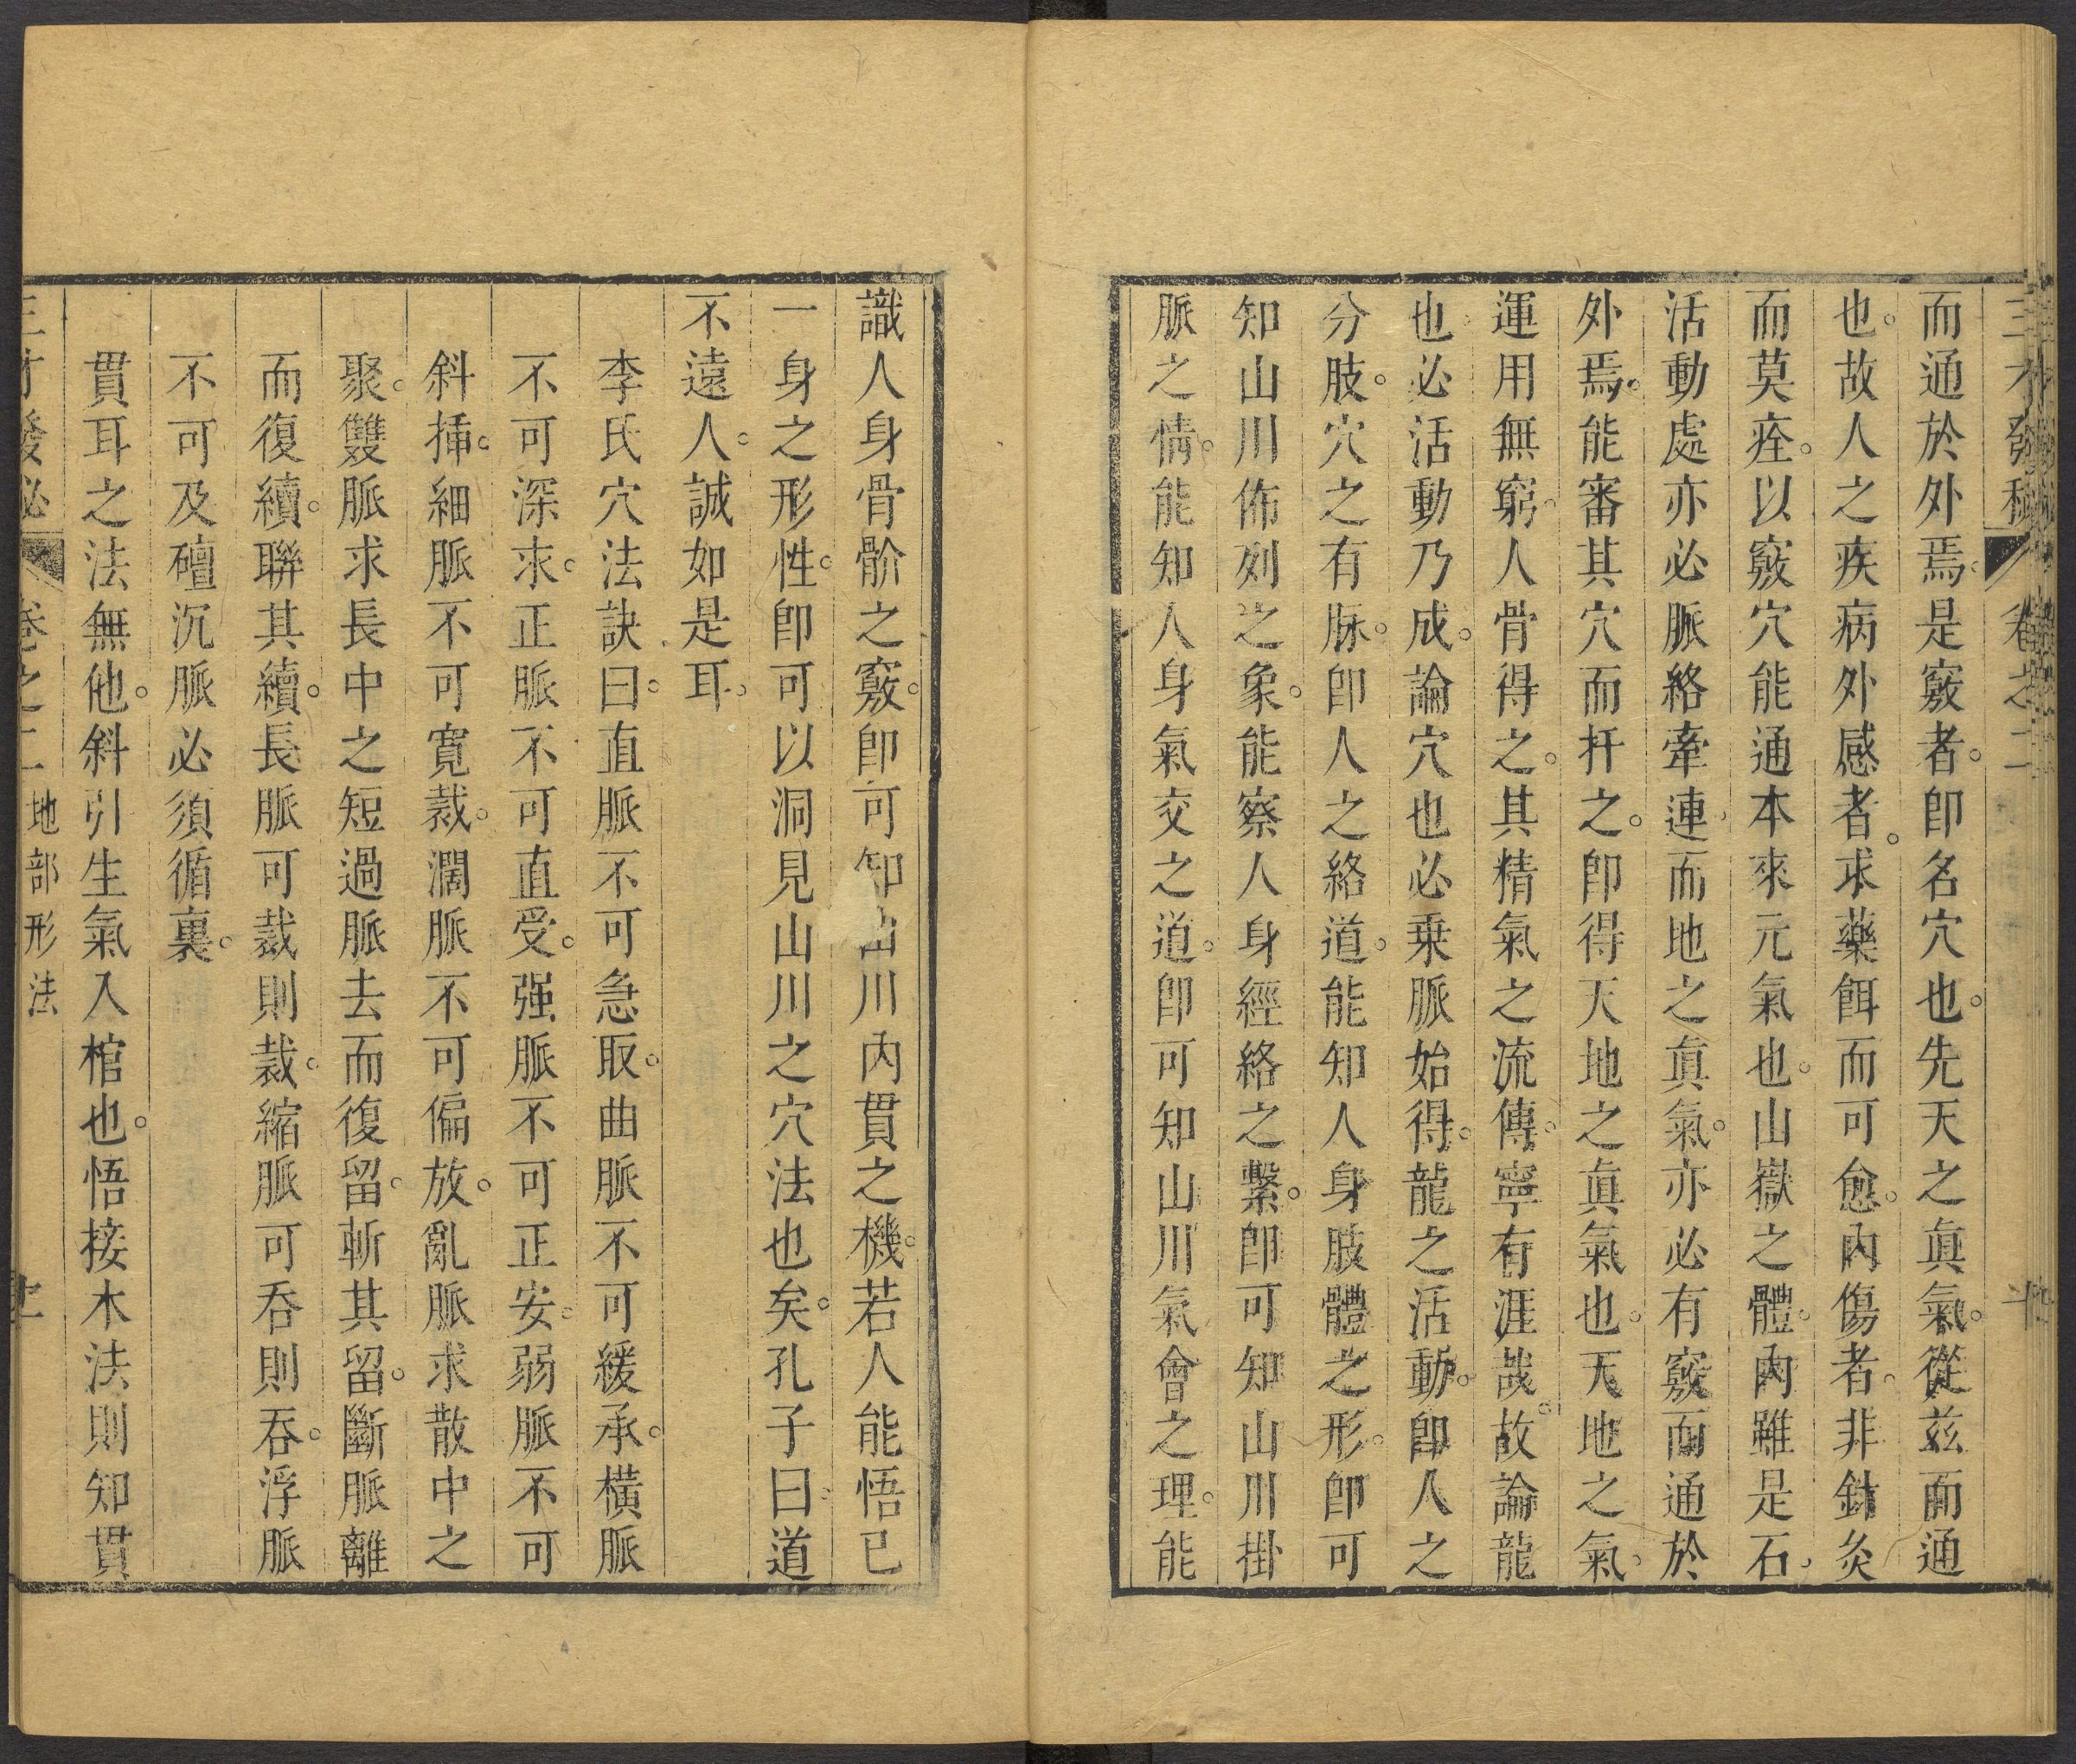 三才發秘 卷之二
而通於外焉。是竅者。卽名穴也。先天之眞氣。從茲而通
也。故人之疾病外感者。求藥餌而可愈。內傷者。非針灸
而莫痊。以竅穴能通本來元氣也。山嶽之體。內雖是石。
活動處亦必脈絡牽連。而地之眞氣。亦必有竅而通於
外焉。能審其穴而扦之。卽得天地之眞氣也。天地之氣。
運用無窮。人骨得之。其精氣之流傳。寧有涯哉。故論龍
也。必活動乃成。論穴也必乘脈始得。龍之活動。卽人之
分肢。穴之有脉。卽人之絡道。能知人身肢體之形。卽可
知山川佈列之象。能察人身經絡之繫。卽可知山川掛
脈之情。能知人身氣交之道。卽可知山川氣會之理。能
識人身骨骱之竅。卽可知山川內貫之機。若人能悟已
一身之形性。卽可以洞見山川之穴法也矣。孔子曰。道
不遠人。誠如是耳。
李氏穴法訣曰。直脈不可急取。曲脈不可緩承。橫脈
不可深求。正脈不可直受。强脈不可正安。弱脈不可
斜揷。細脈不可寬裁。濶脈不可偏放。亂脈求散中之
聚。雙脈求長中之短過脈去而復留。斬其留。斷脈離
而復續。聯其續。長脈可裁則裁。縮脈可吞則吞。浮脈
不可及礓沉脈必須循裏。
貫耳之法無他。斜引生氣入棺也。悟接木法則知貫
三才發秘 卷之二 地部形法